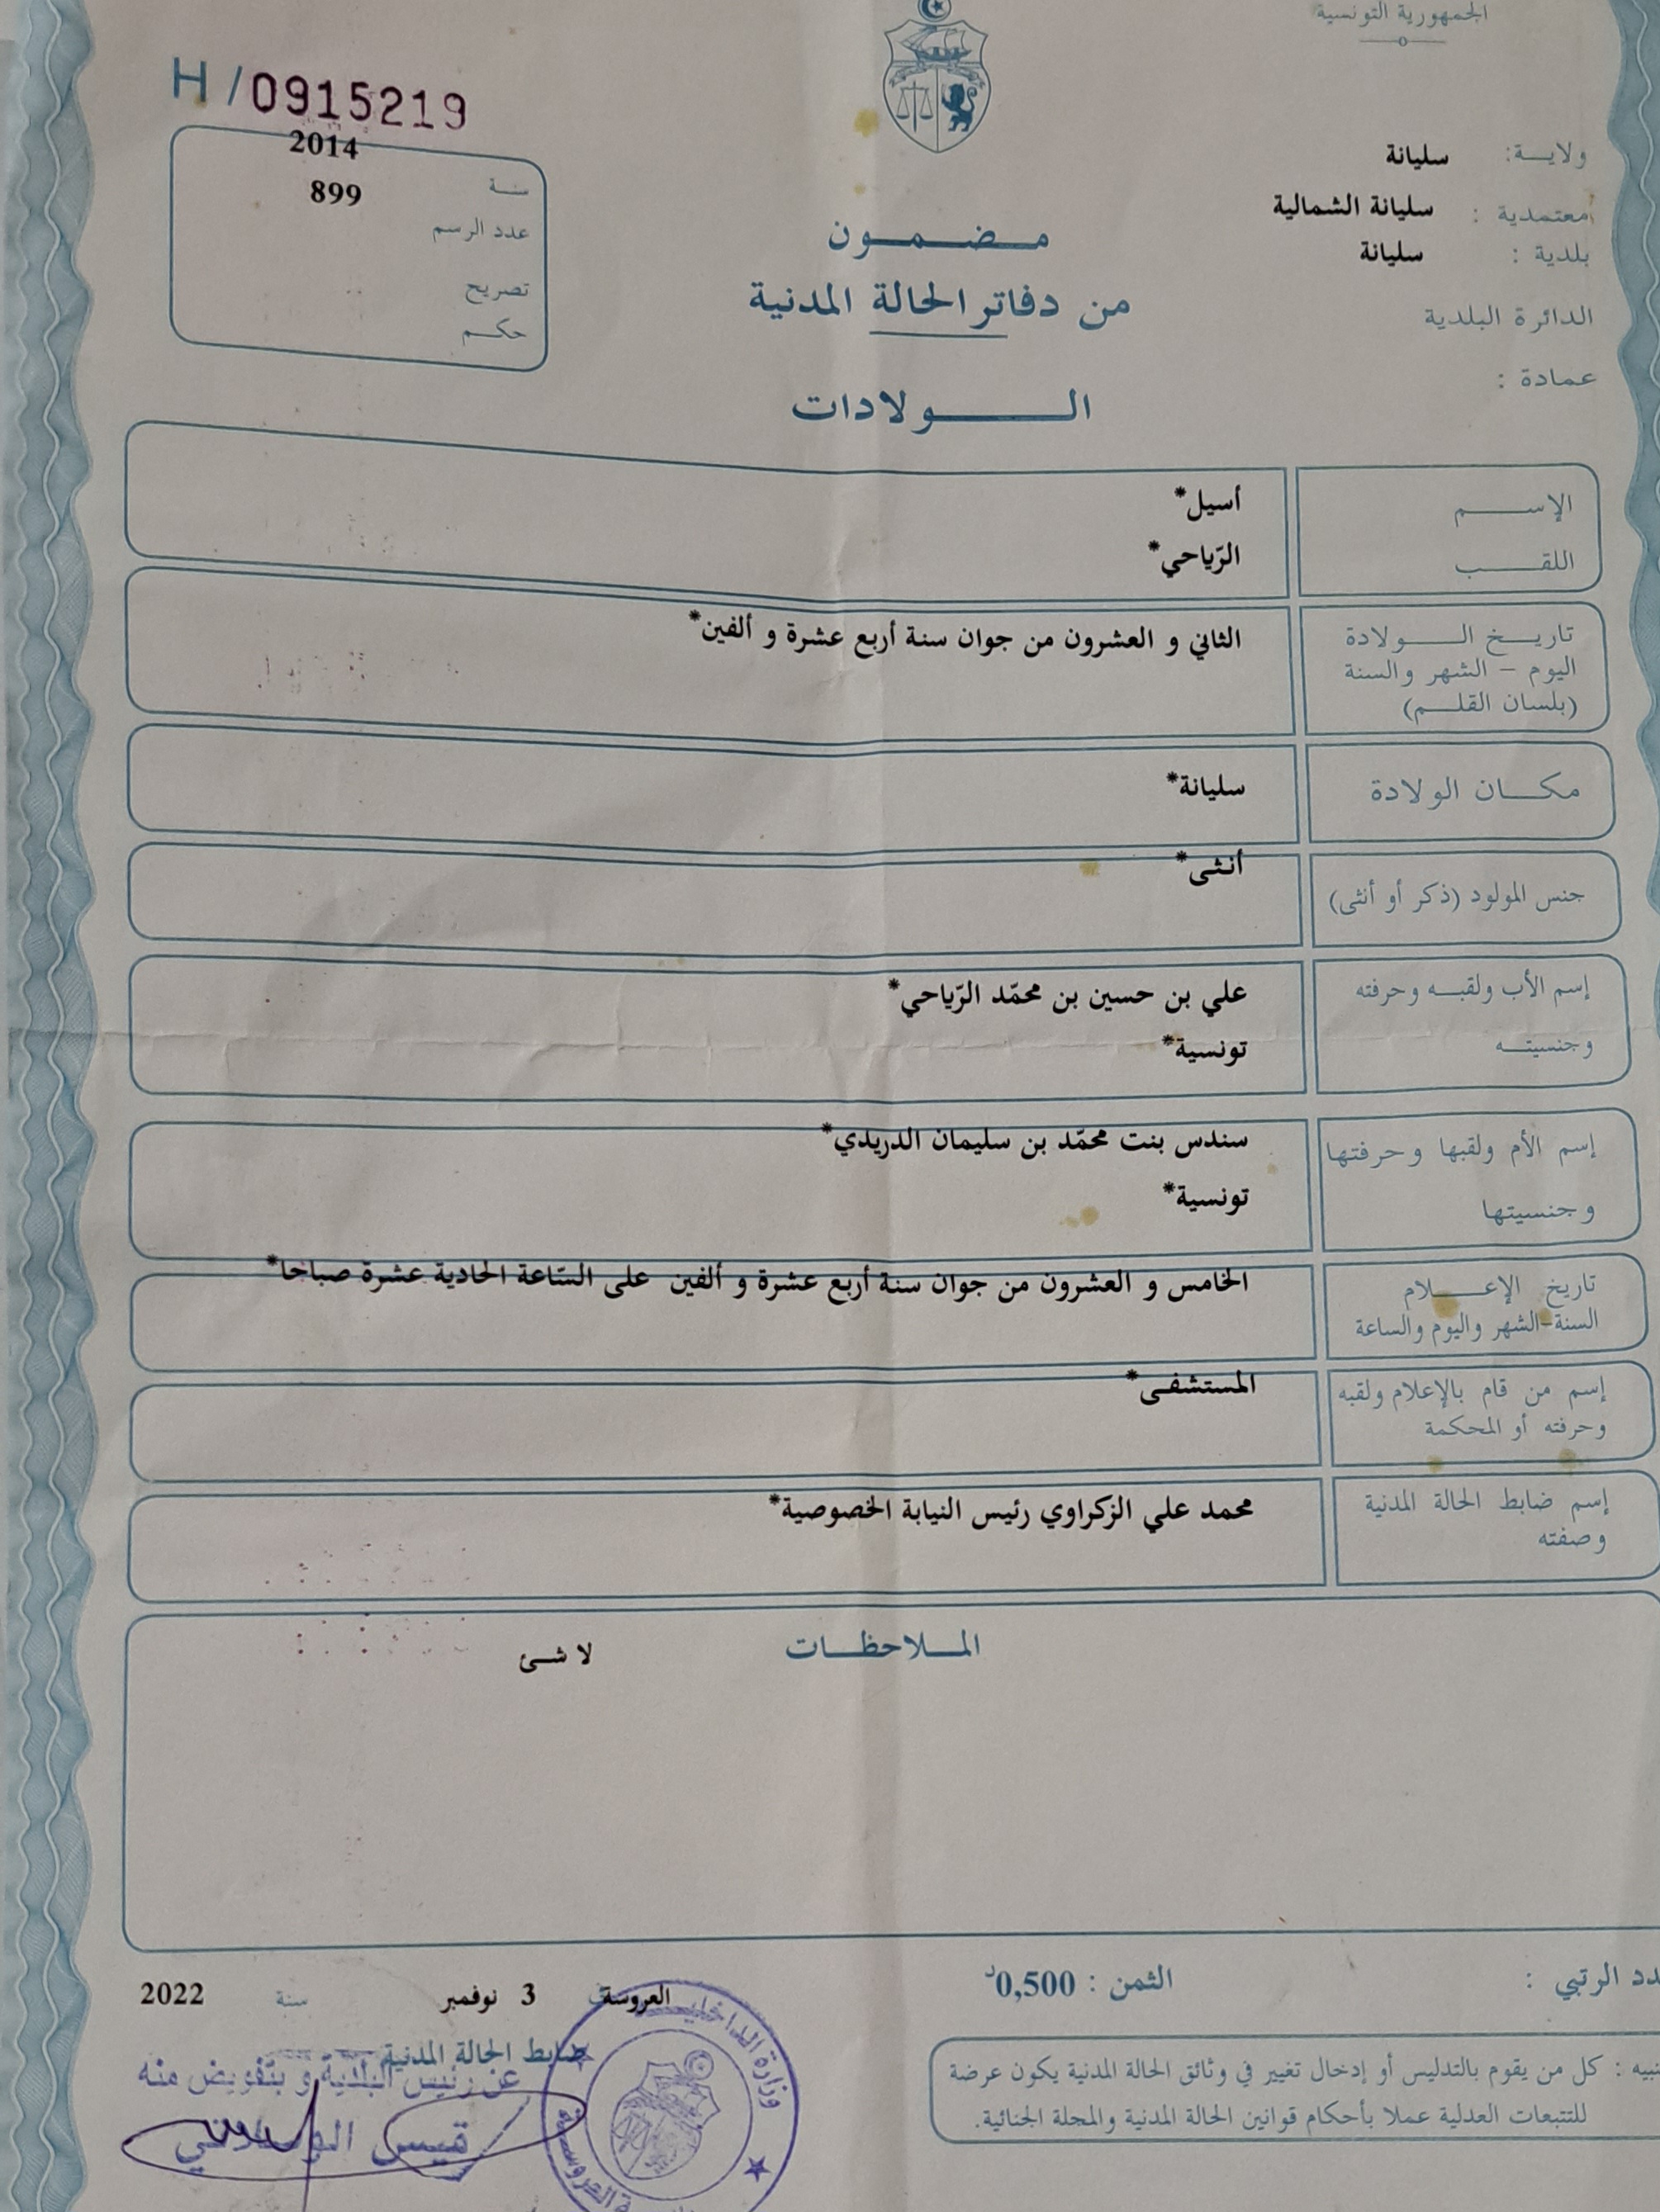 الجمهورية التونسية
H / 0915219
2014
سنة
899
عدد الرسم
تصريح
حكم
ولاية: سليانة
معتمدية : سليانة الشمالية
بلدية : سليانة
الدائرة البلدية
عمادة :
مضمون
من دفاتر الحالة المدنية
الولادات
الإسم أسيل*
اللقب الرّياحي*
تاريخ الولادة الثاني و العشرون من جوان سنة أربع عشرة و ألفين*
اليوم - الشهر والسنة
(بلسان القلم)
مكان الولادة سليانة*
جنس المولود (ذكر أو أنثى) أنثى*
إسم الأب ولقبه وحرفته علي بن حسين بن محمّد الرّياحي*
وجنسيته تونسية*
إسم الأم ولقبها وحرفتها سندس بنت محمّد بن سليمان الدريدي*
وجنسيتها تونسية*
تاريخ الإعلام الخامس و العشرون من جوان سنة أربع عشرة و ألفين على السّاعة الحادية عشرة صباحا*
السنة-الشهر واليوم والساعة
إسم من قام بالإعلام ولقبه المستشفى*
وحرفته أو المحكمة
إسم ضابط الحالة المدنية محمد علي الزكراوي رئيس النيابة الخصوصية*
وصفته
الملاحظات لا شئ
دد الرتبي :
الثمن : 0,500د
العروسة 3 نوفمبر سنة 2022
ضابط الحالة المدنية
عن رئيس البلدية و بتفويض منه
قيس
وزارة الداخلية
العروسة
نبيه : كل من يقوم بالتدليس أو إدخال تغيير في وثائق الحالة المدنية يكون عرضة
للتتبعات العدلية عملا بأحكام قوانين الحالة المدنية والمجلة الجنائية.